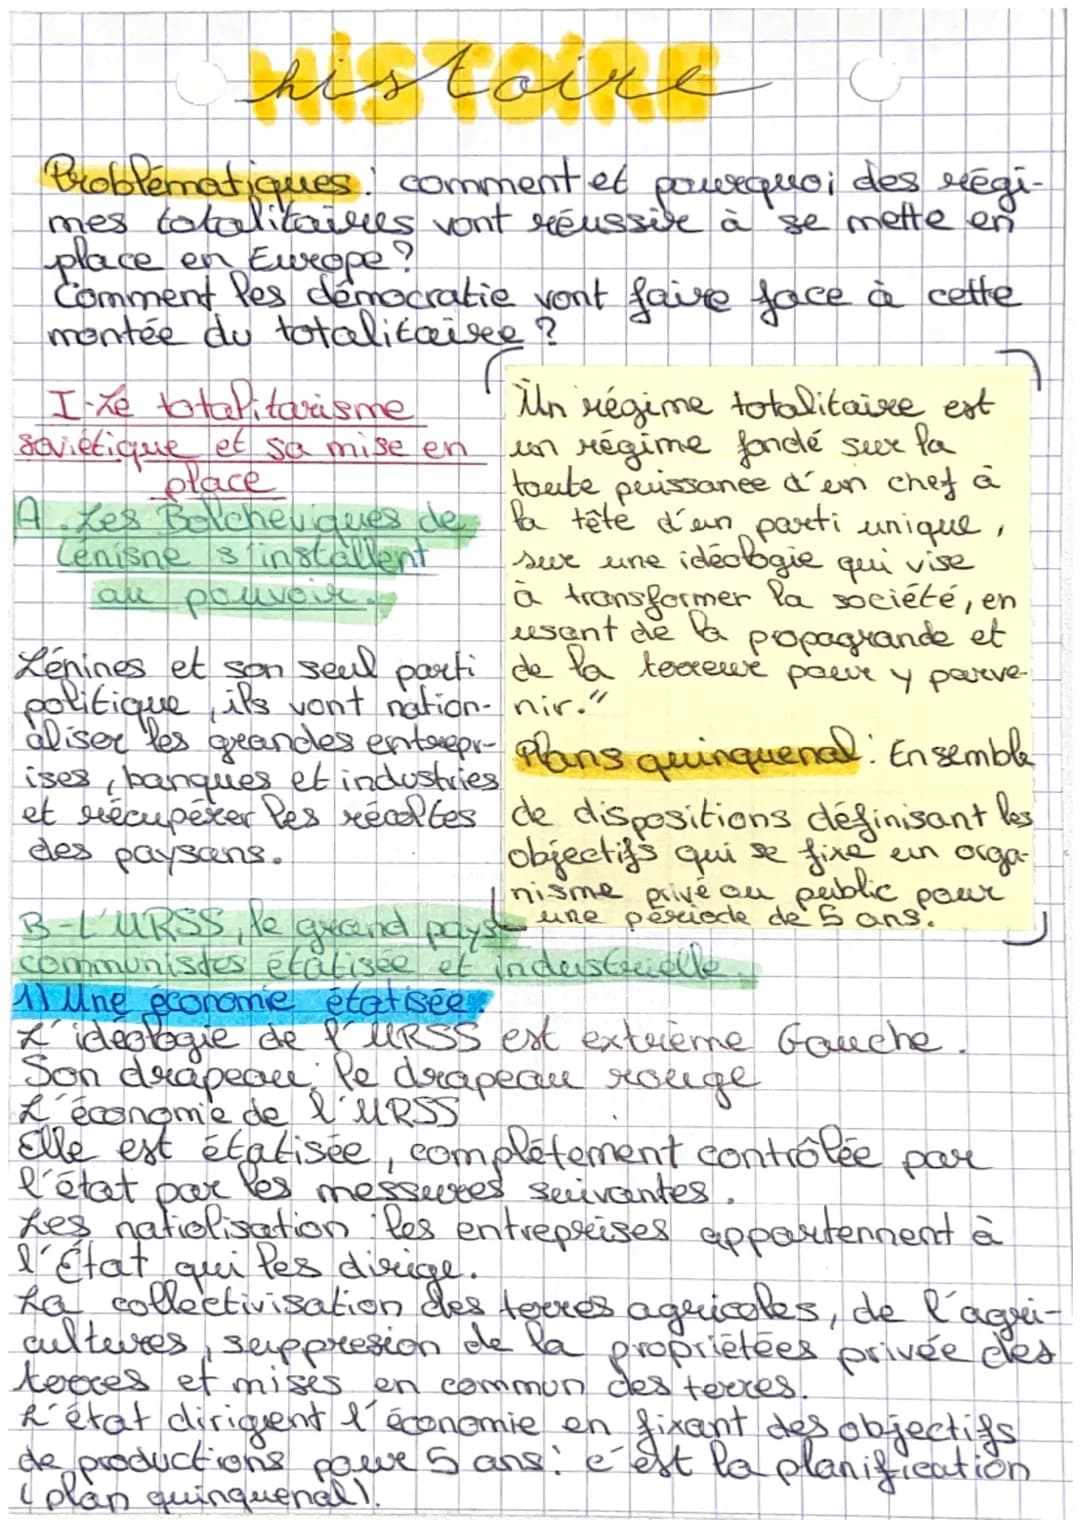 HISTOIRE
histoire
Problématiques : comment et pourquoi des régi-
mes totalitaires vont réussir à se mette en
place en Europe ?
Comment les démocratie vont faire face à cette
montée du totalitaire ?
I-Le totalitarisme
soviétique et sa mise en
place
A. Les Bolcheviques de
Lénisne s'installent
au pouvoir.
Lénines et son seul parti
politique, ils vont nation-
aliser les grandes entrepr-
ises, banques et industries
et récupérer les récoltes
des paysans.
Un régime totalitaire est
un régime fondé sur la
toute puissance d'un chef à
la tête d'un parti unique,
sur une idéologie qui vise
à transformer la société, en
usant de la propagrande et
de la terreur pour y parve-
nir."
Plans quinquenal : Ensemble
de dispositions définisant les
objectifs qui se fixe un orga-
nisme privé ou public pour
une période de 5 ans.
B-L'URSS, le grand pays
communistes étatisée et industrielle.
1) Une économie étatisée :
L'idéologie de l'URSS est extrème Gauche.
Son drapeau : le drapeau rouge
L'économie de l'URSS
Elle est étatisée, complétement contrôlée par
l'état par les messures suivantes.
Les natiolisation : les entrepreises appartennent à
l'État qui les dirige.
La collectivisation des terres agricoles, de l'agri-
cultures, suppresion de la propriétées privée des
terres et mises en commun des terres.
L'état dirigent l'économie en fixant des objectifs
de productions pour 5 ans : c'est la planification
(plan quinquenal).